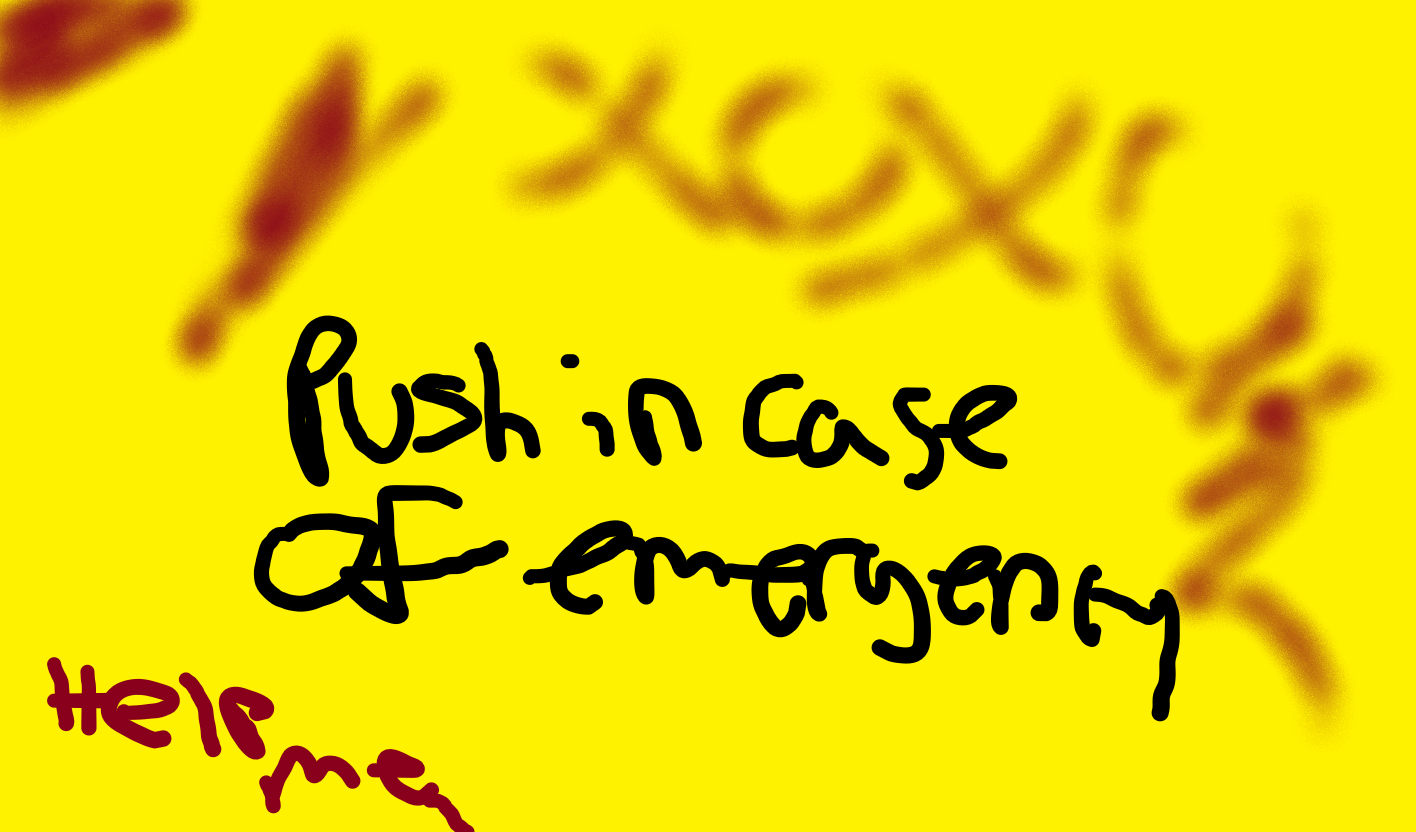 xoxo
Push in case
of emergency
Help me